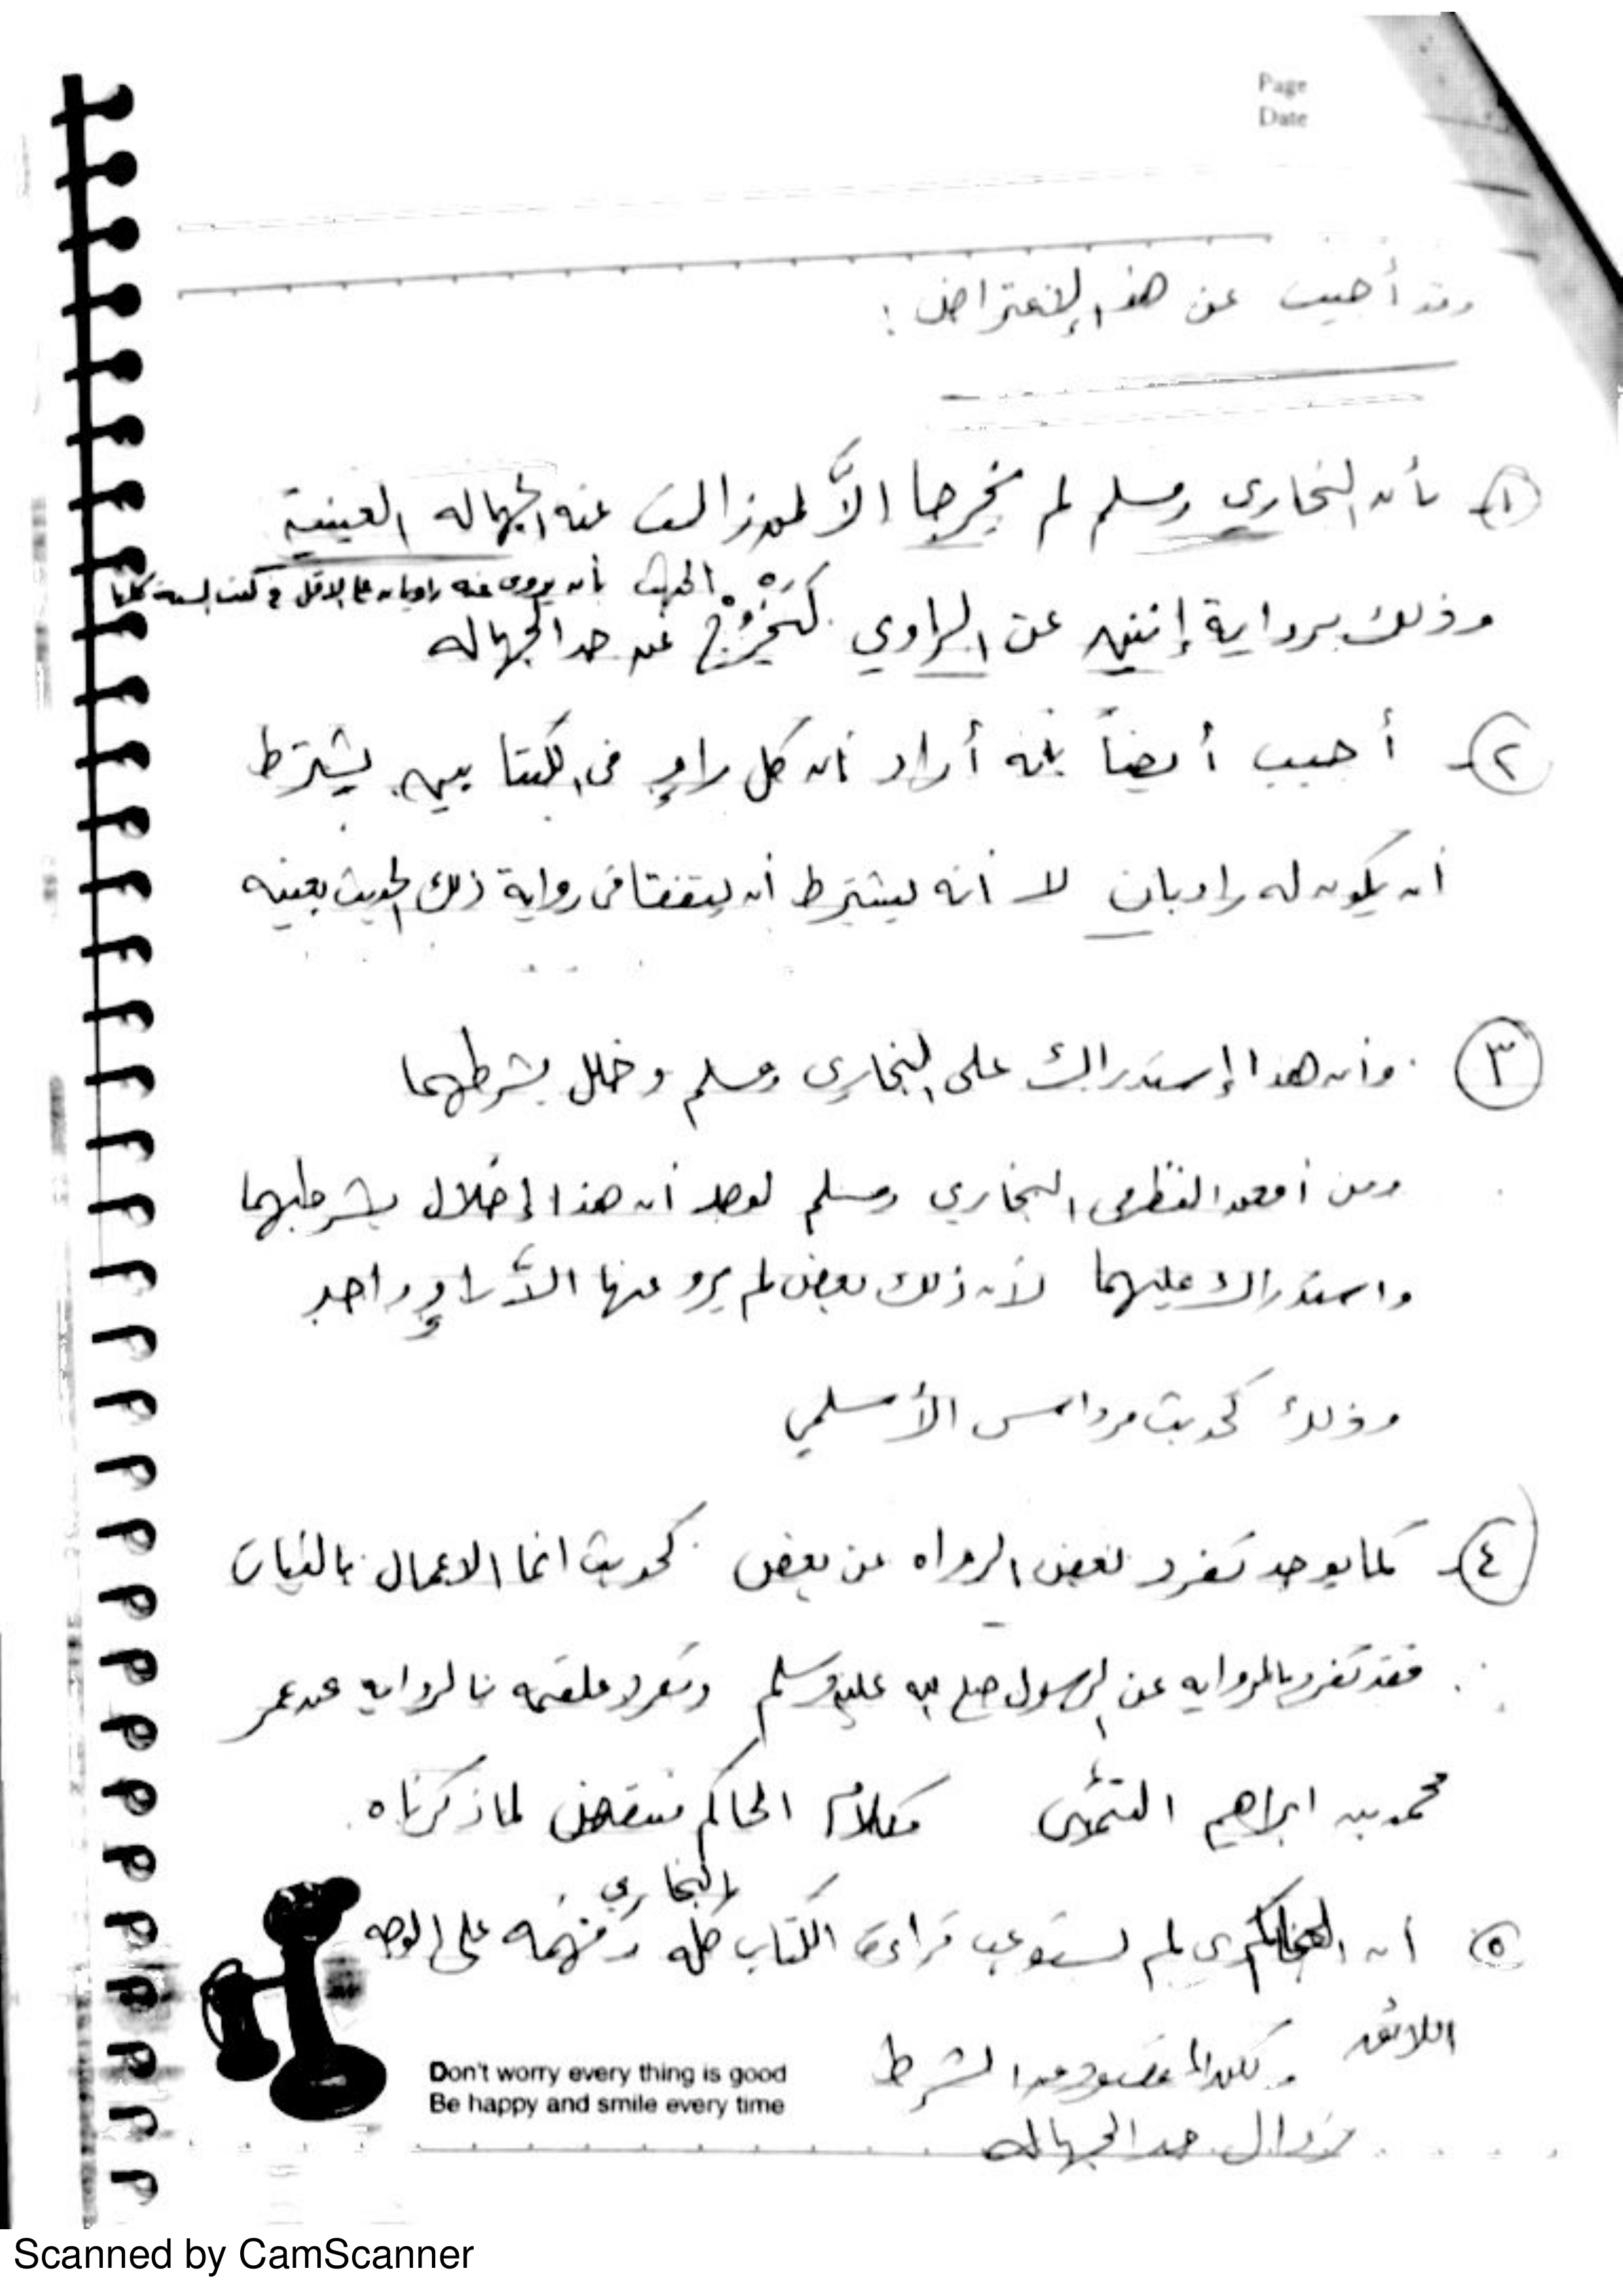 Page
Date
وقد أجيب عن هذا الإعتراض :
١- بأن البخاري ومسلم لم يخرجا الاَّ لمن زالت عنه الجهاله العينية
الحديث بأن يروى عنه راويان على الاقل في كتب السنة كلها
وذلك برواية إثنين عن الراوي لَيَخْرُجَ عن حد الجهاله
٢- أجيب أيضاً بأنه أراد أن كل راوٍ في الكتابين يشترط
أن يكون له راويان لا أنه يشترط أن يتفقا في رواية ذلك الحديث بعينه
٣ وأن هذا إستدراك على البخاري ومسلم وخلل بشرطهما
ومن أمعن النظر في البخاري ومسلم لوجد أن هذا إخلال بشرطيهما
واستدراك عليهما لأن ذلك بعض لم يرو عنها الاَّ راوٍ واحد
وذلك كحديث مرداس الأسلمي
٤- كما يوجد تفرد بعض الرواه عن بعض كحديث انما الاعمال بالنيات
فقد تفرد بالروايه عن الرسول صلى الله عليه وسلم وتفرد علقمه بالروايه عن عمر
محمد بن ابراهيم التيمي وكلام الحاكم منتقض لما ذكرناه
البخاري
٥ أن لم يستوعب قراءة الكتاب كله وفهمه على الوجه
اللائق ولكن المقصود من الشرط
زوال حد الجهاله
Don't worry every thing is good
Be happy and smile every time
Scanned by CamScanner